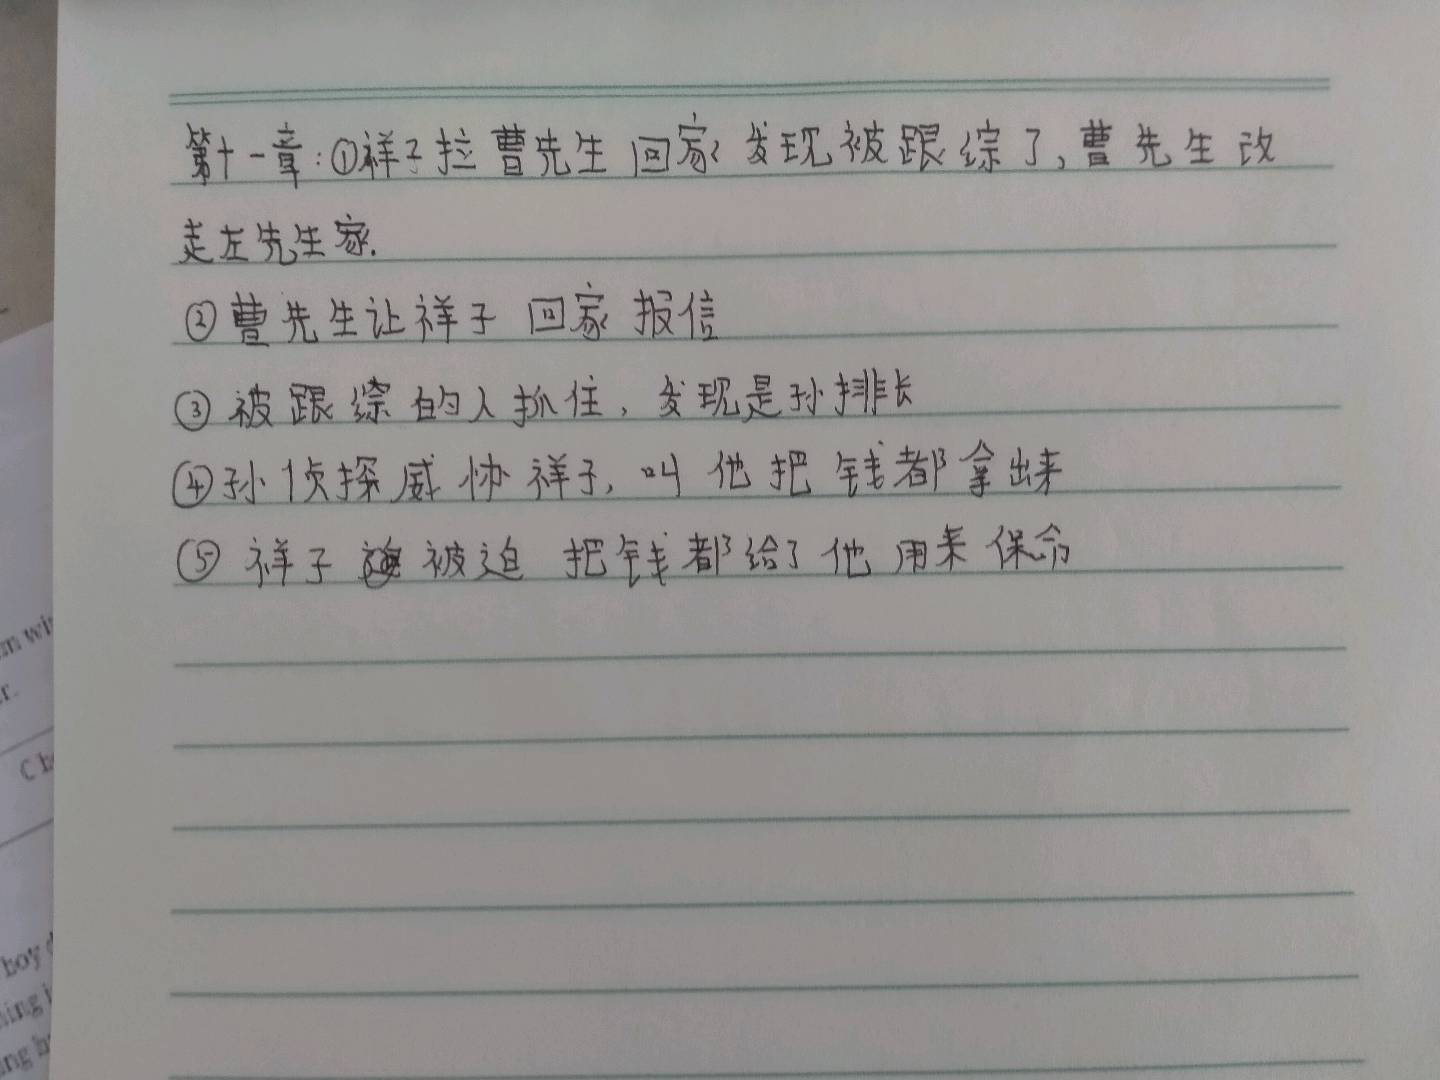 第十一章:①祥子拉曹先生回家发现被跟综了,曹先生改
走左先生家.
②曹先生让祥子回家报信
③被跟综的人抓住,发现是孙排长
④孙侦探威协祥子,叫他把钱都拿出来
⑤祥子被迫把钱都给了他用来保命
an wi
r.
C h
boy
hing
ng h